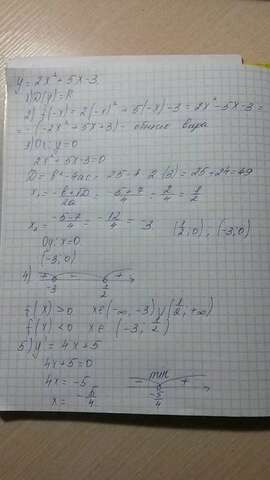 y = 2x² + 5x - 3
1) D(y) = R
2) f(-x) = 2(-x)² + 5(-x) - 3 = 2x² - 5x - 3 =
= -(-2x² + 5x + 3) - общего вида
3) Ox: y = 0
2x² + 5x - 3 = 0
D = b² - 4ac = 25 - 4 · 2 · (3) = 25 + 24 = 49
x₁ = (-b + √D)/2a = (-5 + 7)/4 = 2/4 = 1/2
x₂ = (-5 - 7)/4 = -12/4 = -3 (1/2; 0), (-3; 0)
Oy: x = 0
(-3; 0)
4) + - +
-3 1/2
f(x) > 0 x∈(-∞, -3)∪(1/2, +∞)
f(x) < 0 x∈ (-3, 1/2)
5) y' = 4x + 5
4x + 5 = 0
4x = -5
x = -5/4
min
- +
-5/4